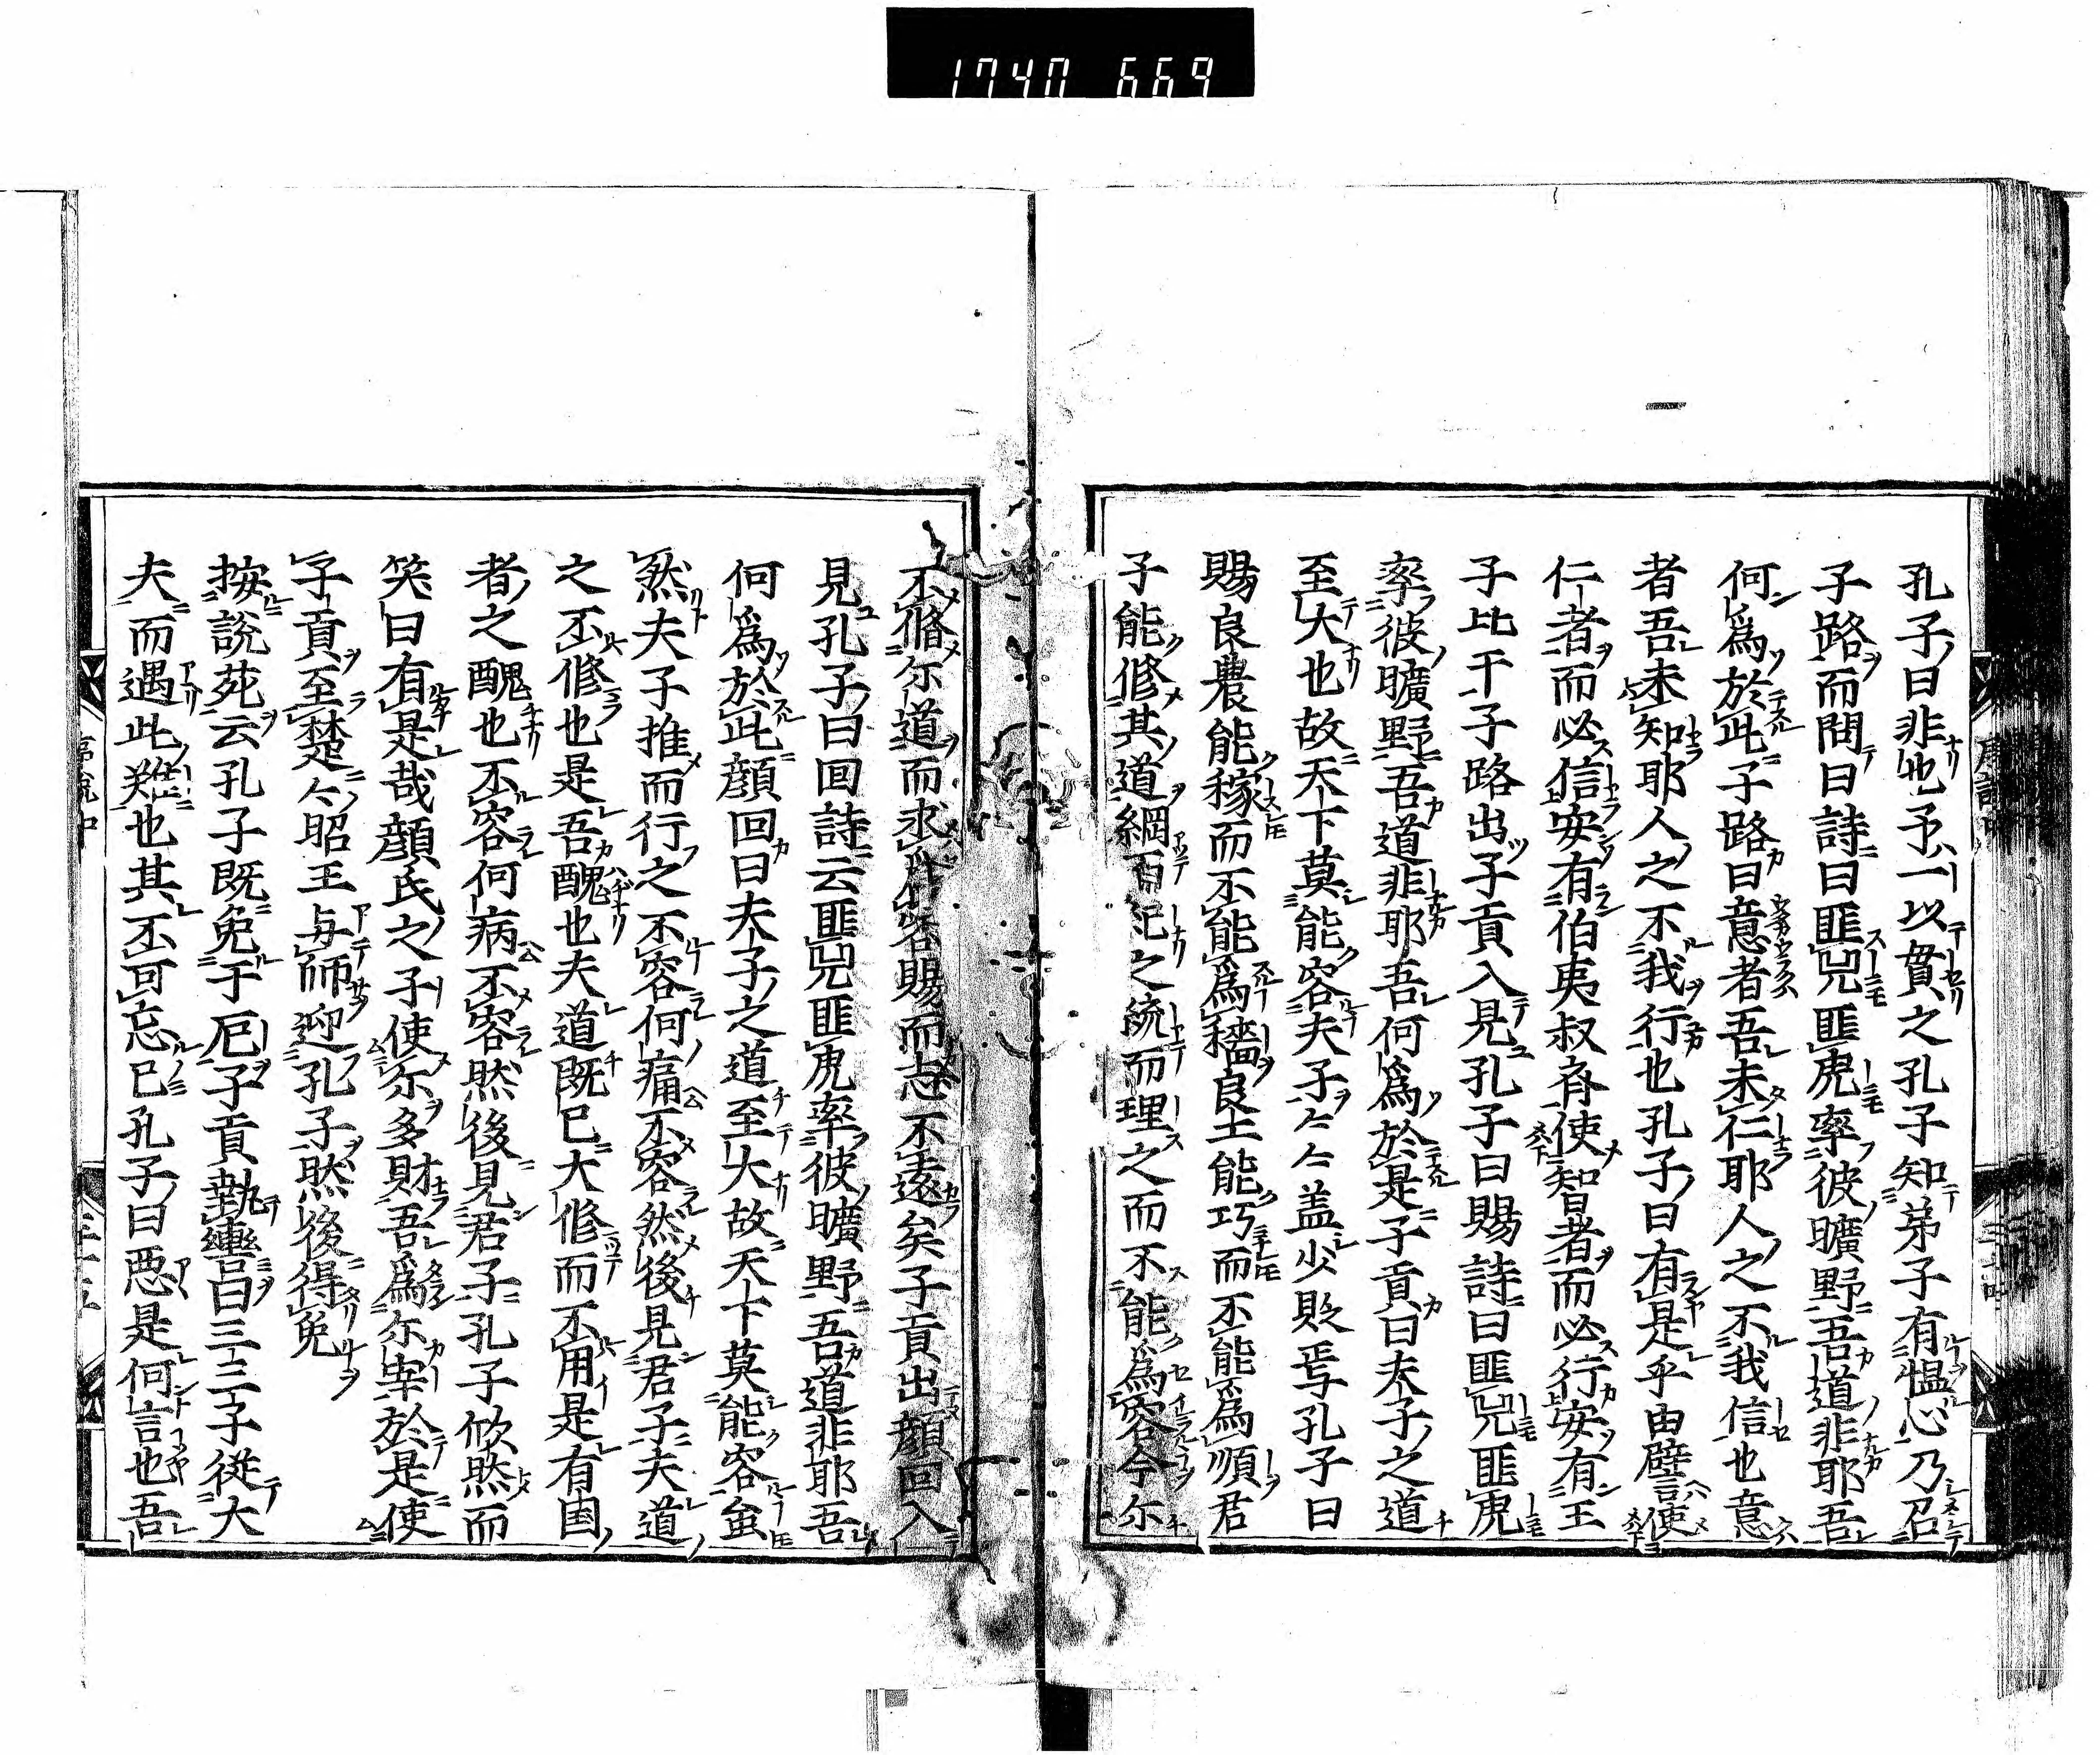 1740 669
孔子曰非也予一以貫之孔子知弟子有慍心乃召
子路而問曰詩曰匪兕匪虎率彼曠野吾道非耶吾
何為於此子路曰意者吾未仁耶人之不我信也意
者吾未知耶人之不我行也孔子曰有是乎由譬使
仁者而必信安有伯夷叔齊使智者而必行安有王
子比干子路出子貢入見孔子曰賜詩曰匪兕匪虎
率彼曠野吾道非耶吾何為於是子貢曰夫子之道
至大也故天下莫能容夫子夫子盖少貶焉孔子曰
賜良農能稼而不能為穡良工能巧而不能為順君
子能修其道綱而紀之統而理之而不能為容今尔
不脩尔道而求為容賜而志不遠矣子貢出顔回入
見孔子曰回詩云匪兕匪虎率彼曠野吾道非耶吾
何為於此顔回曰夫子之道至大故天下莫能容虽
然夫子推而行之不容何痛不容然後見君子夫道
之不修也是吾醜也夫道既已大修而不用是有国
者之醜也不容何病不容然後見君子孔子欣然而
笑曰有是哉顔氏之子使尔多財吾為尔宰於是使
子貢至楚楚昭王与師迎孔子然後得免
按説苑云孔子既免于厄子貢執轡曰二三子從大
夫而遇此難也其不可忘已孔子曰悪是何言也吾